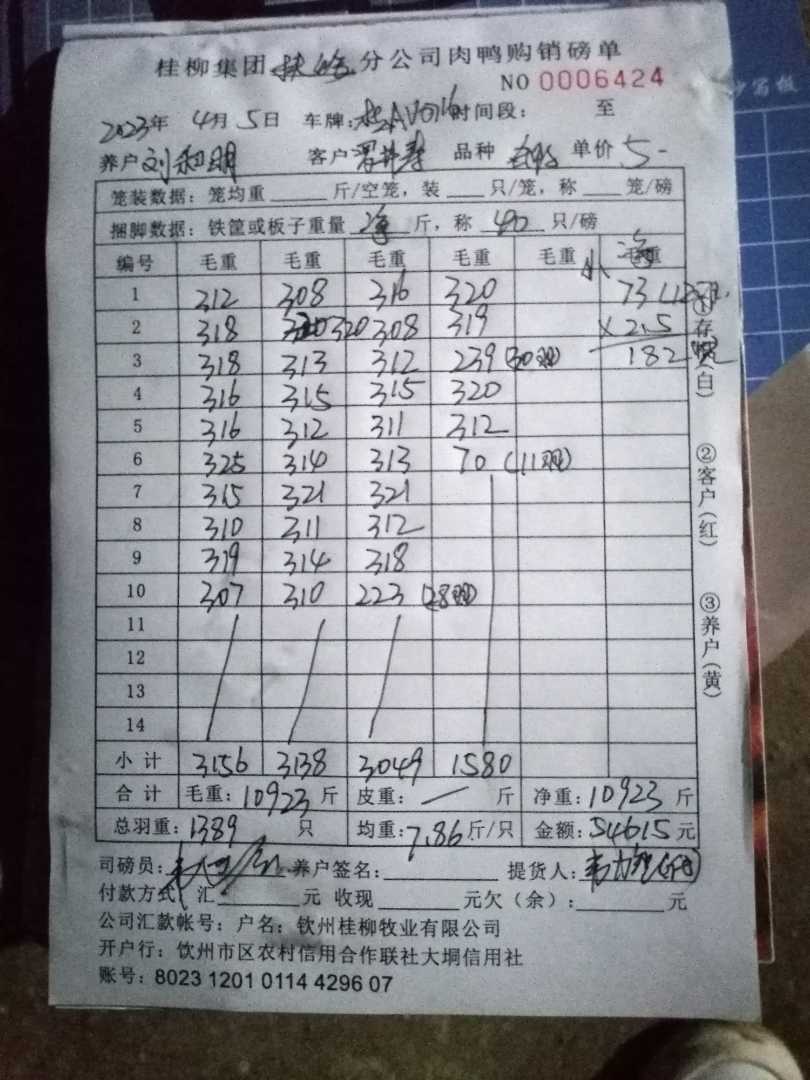 桂柳集团 扶绥 分公司肉鸭购销磅单
NO 0006424
2023年 4月 5日 车牌: 时间段: 至
养户 刘和明 客户 品种 单价 5-
笼装数据：笼均重 斤/空笼，装 只/笼，称 笼/磅
捆脚数据：铁筐或板子重量 净 斤，称 40 只/磅
编号 毛重 毛重 毛重 毛重 毛重 毛重
小 海
1 312 308 316 320 73
2 318 320 308 319 ×2.5
3 318 313 312 239 (30只) 182
4 316 315 315 320
5 316 312 311 312
6 325 314 313 70 (11只)
7 315 321 321
8 310 311 312
9 319 314 318
10 307 310 223 (28只)
11
12
13
14
小计 3156 3138 3049 1580
合计 毛重: 10923 斤 皮重: — 斤 净重: 10923 斤
总羽重: 1389 只 均重: 7.86 斤/只 金额: 54615 元
司磅员: 养户签名: 提货人:
付款方式: 汇 元 收现 元欠（余）: 元
公司汇款帐号：户名：钦州桂柳牧业有限公司
开户行：饮州市区农村信用合作联社大垌信用社
账号：8023 1201 0114 4296 07
①存根(白)
②客户(红)
③养户(黄)